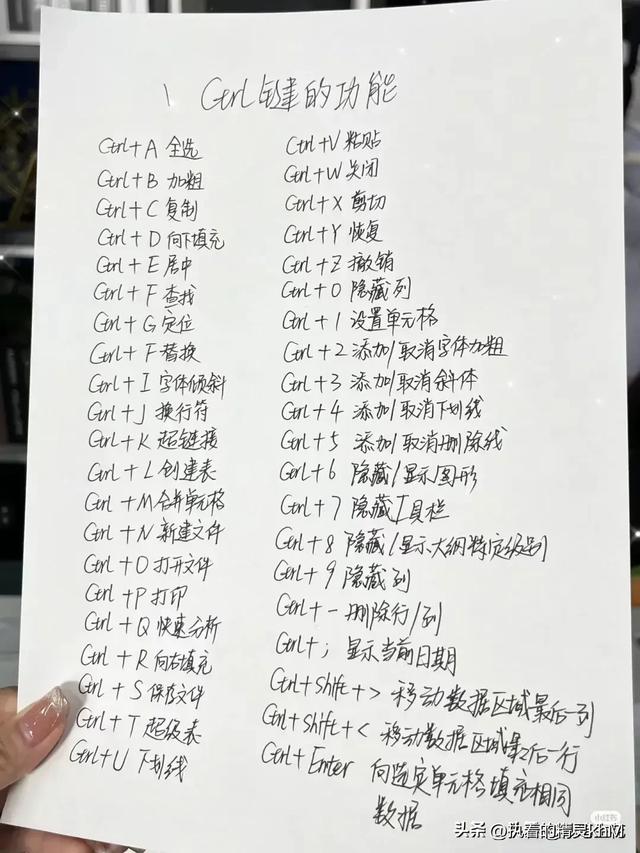 Ctrl键的功能
Ctrl+A 全选
Ctrl+B 加粗
Ctrl+C 复制
Ctrl+D 向下填充
Ctrl+E 居中
Ctrl+F 查找
Ctrl+G 定位
Ctrl+F 替换
Ctrl+I 字体倾斜
Ctrl+J 换行符
Ctrl+K 超链接
Ctrl+L 创建表
Ctrl+M 合并单元格
Ctrl+N 新建文件
Ctrl+O 打开文件
Ctrl+P 打印
Ctrl+Q 快速分析
Ctrl+R 向右填充
Ctrl+S 保存文件
Ctrl+T 超级表
Ctrl+U 下划线
Ctrl+V 粘贴
Ctrl+W 关闭
Ctrl+X 剪切
Ctrl+Y 恢复
Ctrl+Z 撤销
Ctrl+0 隐藏列
Ctrl+1 设置单元格
Ctrl+2 添加/取消字体加粗
Ctrl+3 添加/取消斜体
Ctrl+4 添加/取消下划线
Ctrl+5 添加/取消删除线
Ctrl+6 隐藏/显示图形
Ctrl+7 隐藏工具栏
Ctrl+8 隐藏/显示大纲特定级别
Ctrl+9 隐藏列
Ctrl+- 删除行/列
Ctrl+; 显示当前日期
Ctrl+Shift+> 移动数据区域最后一列
Ctrl+Shift+< 移动数据区域最后一行
Ctrl+Enter 向选定单元格填充相同
数据
小红书
头条 @执着的精灵